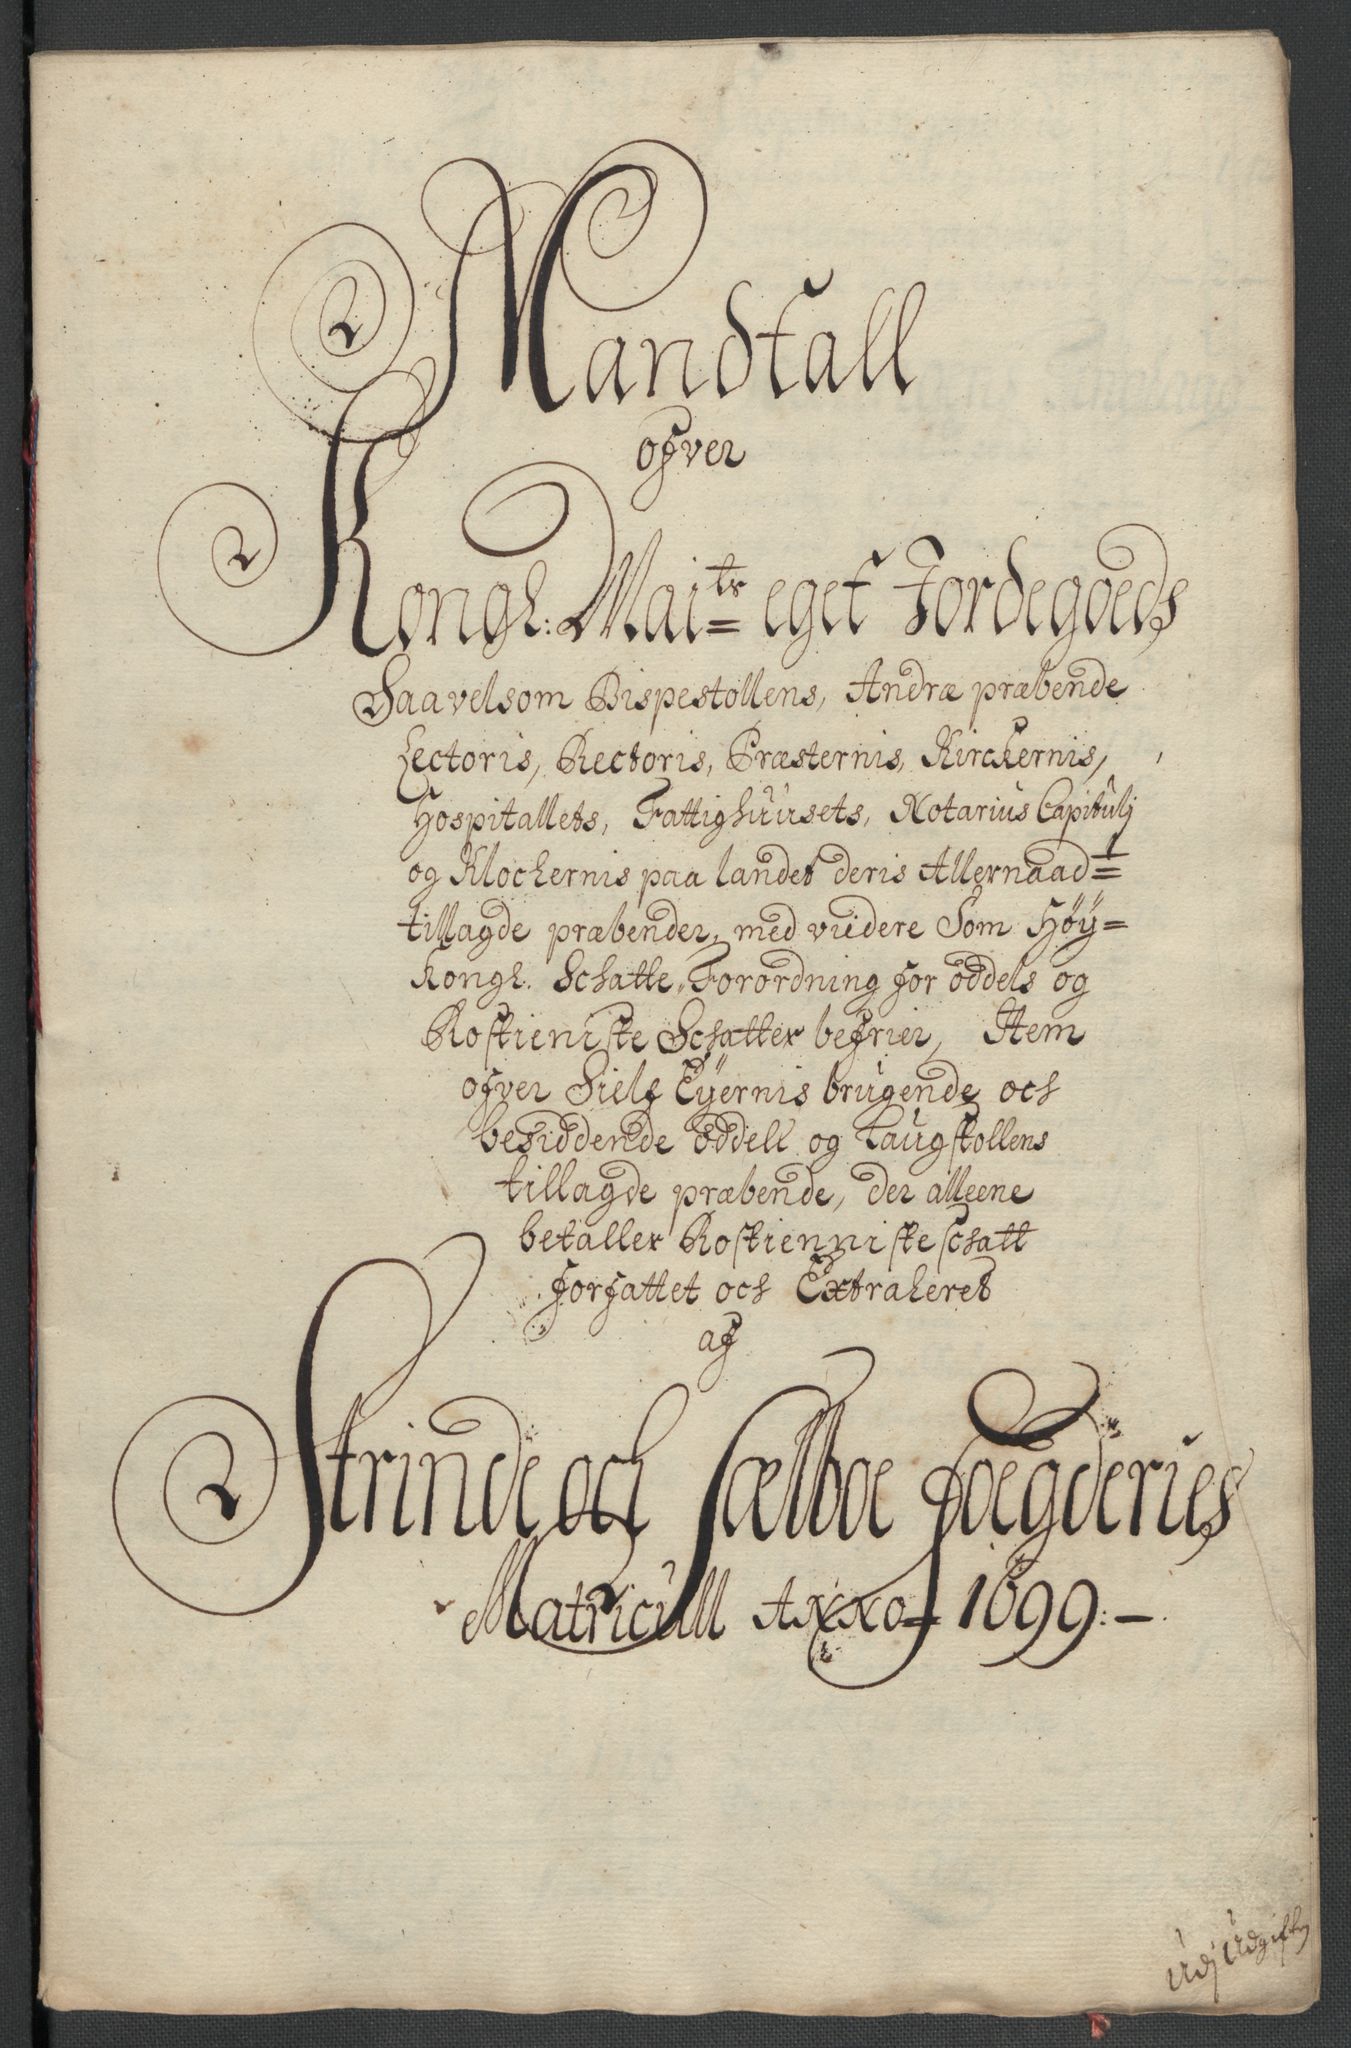 Mandtall
ofver
Kongl: Mai^ts= eget Jordegoeds
Saavelsom Bispestollens, Andræ præbende
Lectoris, Rectoris, Præsternis, Kirckernis,
Hospitallets, Fattighuusets, Notarius Capitulj
og Klockernis paa landet deris Allernaad=
tillagde præbender, med viidere Som Høy=
Kongl. Schatte, Forordning for oddels og
Rostieniste Schatter befrier, Item
ofver Sielf Eyernis brugende och
besiddende oddell og Laugstollens
tillagde præbende, der alleene
betaller Rostienniste schatt
forfattet och Extraheret
af
Strinde och Sælboe Foegderies
Matricull Anno 1699:-
Udj Udgifter